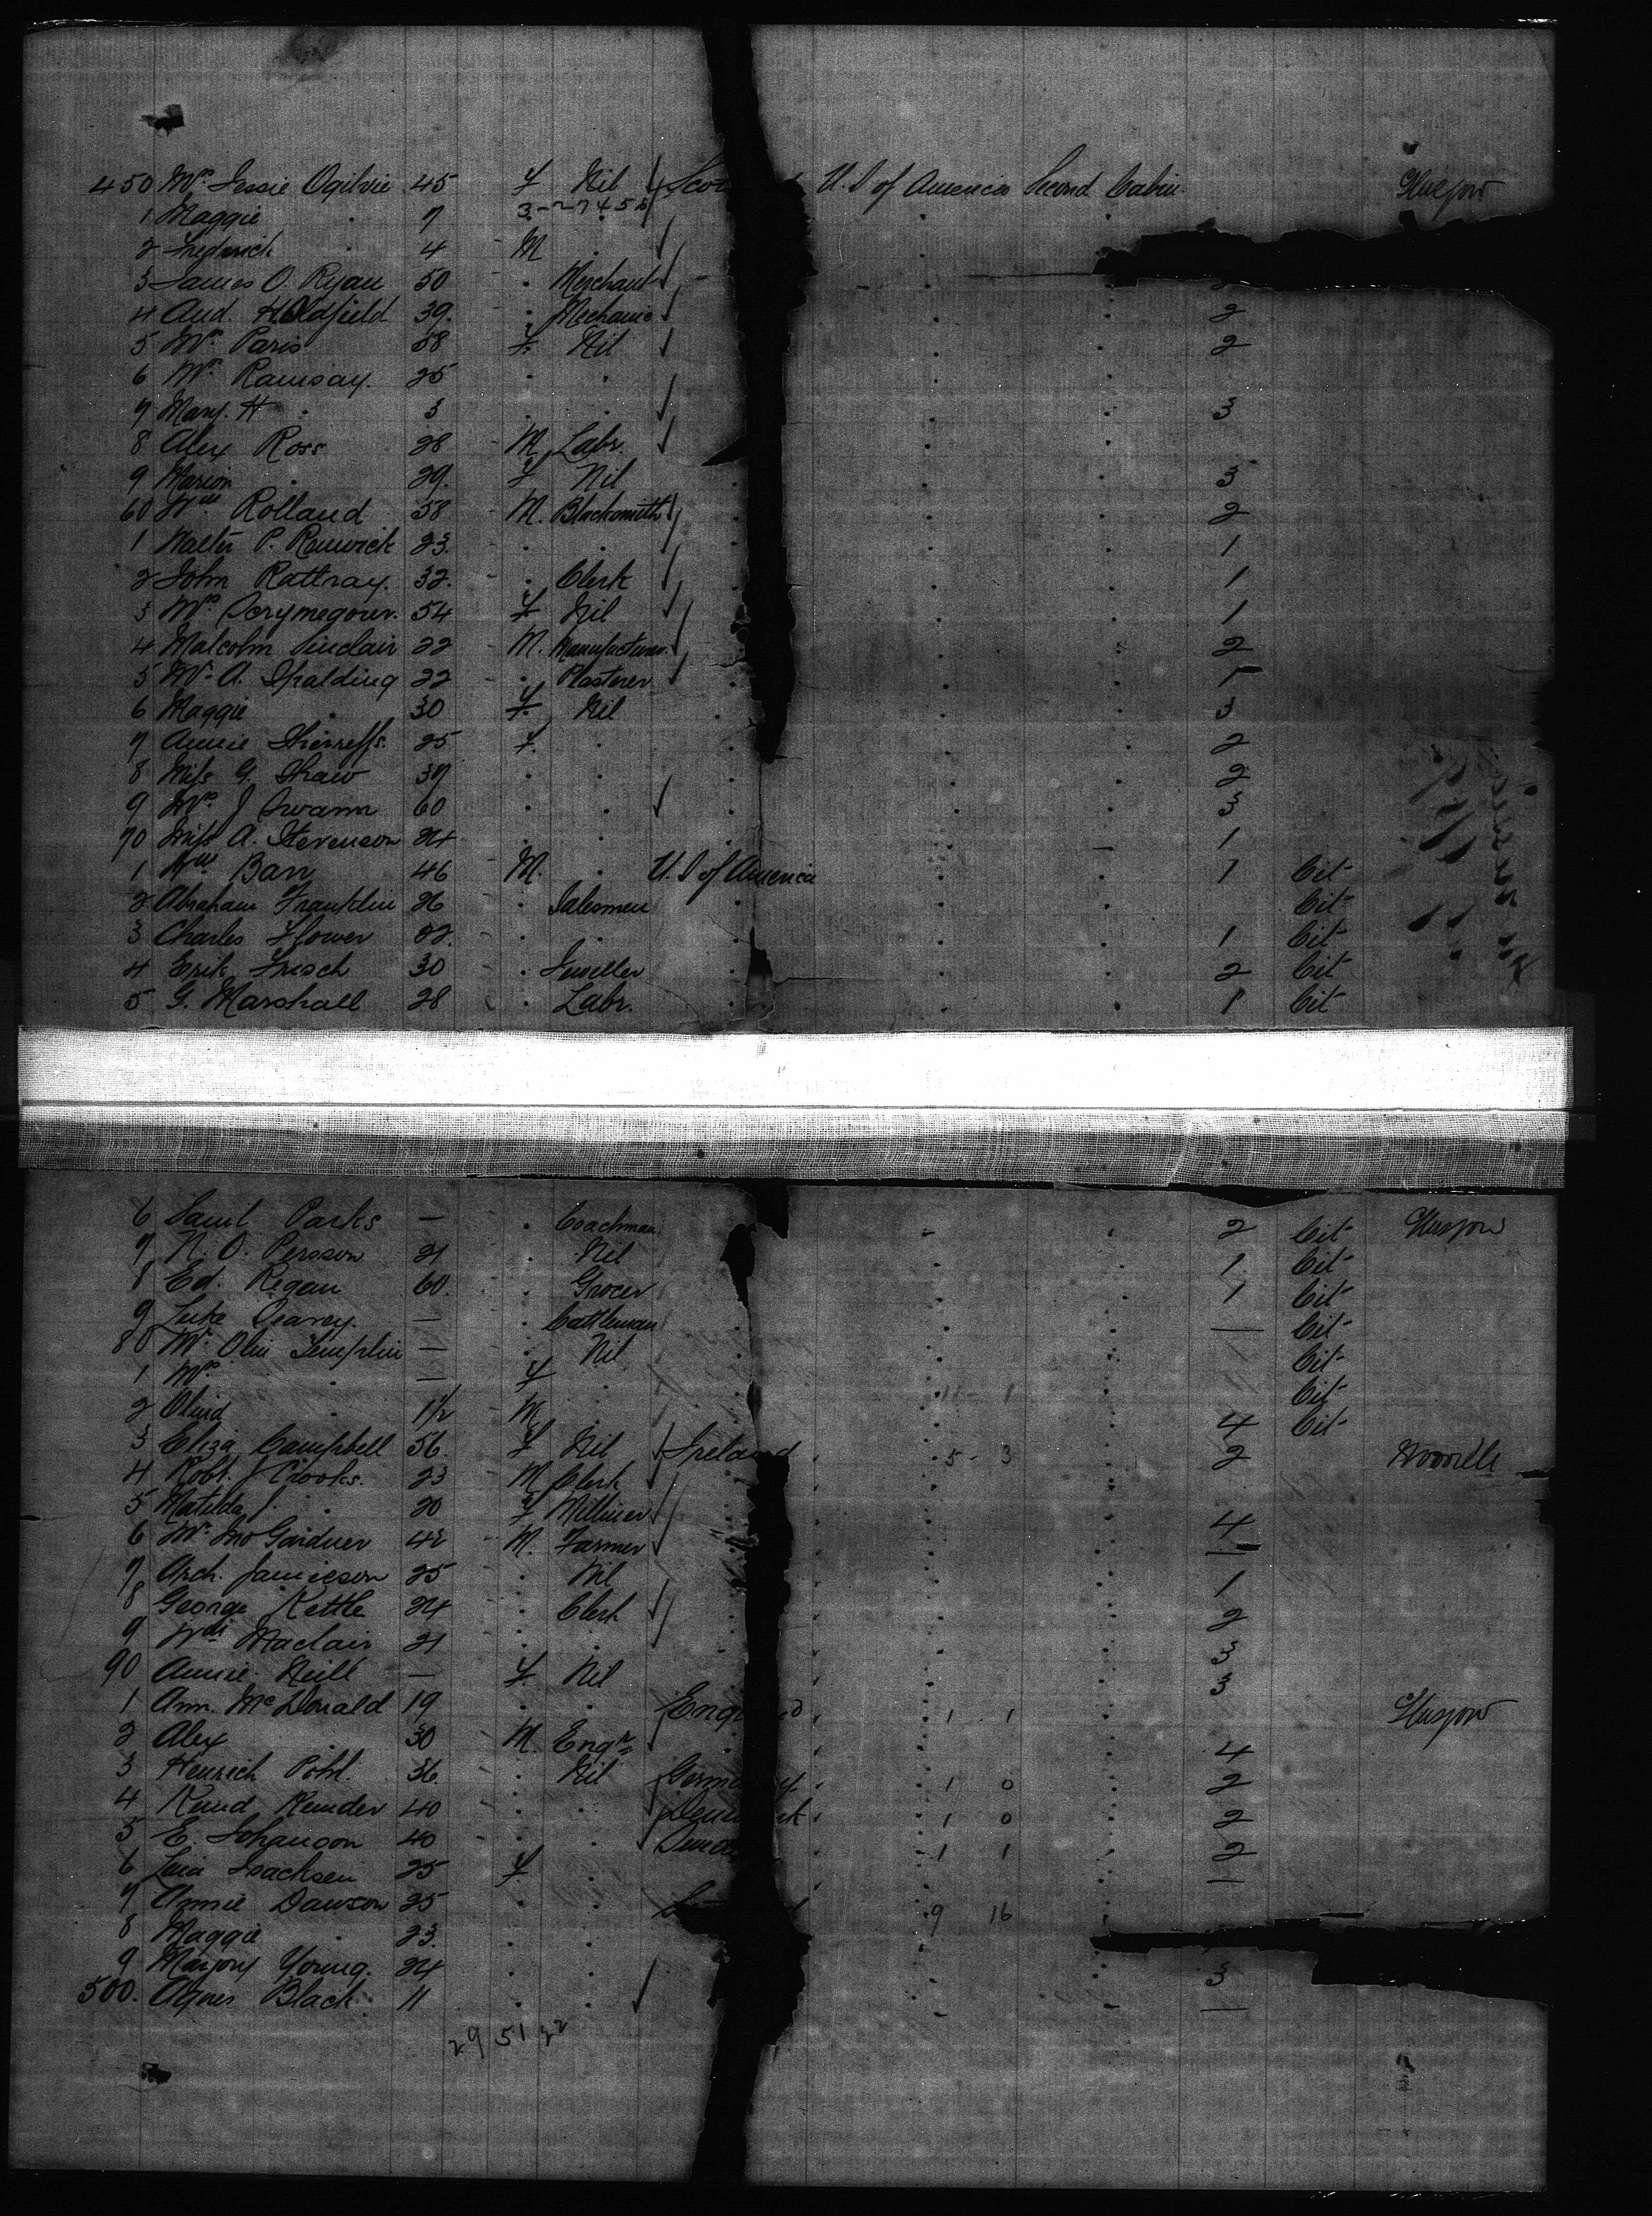 450 Mrs Jessie Ogilvie 45 F Nil Scot U.S of America Second Cabin Glasgow
1 Maggie " 7 3-27455
2 Frederick " 4 M "
3 James O. Ryan 50 " Merchant
4 And. H Oldfield 39. " Mechanic 2
5 Mrs Paris 58 F. Nil 2
6 Mrs Ramsay. 25 " "
7 Mary. H " 3 " " 3
8 Alex Ross 28 M Labr.
9 Marion " 29. F Nil 3
60 Wm Rolland 38 M. Blacksmith 2
1 Walter P. Renwick 23. " " 1
2 John Rattray. 32. " Clerk 1
3 Mrs Scrymegour. 54 F Nil 1
4 Malcolm Sinclair 22 M. Manufacturer. 2
5 Mr. A. Spalding 22 " Plasterer 1
6 Maggie " 30 F. Nil 3
7 Annie Shirreffs. 25 F. " 2
8 Miss G. Shaw 37 " " 2
9 Mrs J Swann 60 " " 3
70 Miss A. Stevenson 24 " " 1
1 Wm Barr 46 M. " U.S of America 1 Cit
2 Abraham Franklin 26 " Salesmen Cit
3 Charles Flower 22. " " 1 Cit
4 Erik Frisch 30 " Jweller 2 Cit
5 G. Marshall 28 " Labr. 1 Cit
6 Saml Parks — " Coachman 2 Cit Glasgow
7 N. O. Persson 21 " Nil 1 Cit
8 Ed. Regan 60. " Grocer 1 Cit
9 Luke Searey. — " Cattleman — Cit
80 Mr Olin Templin — " Nil Cit
1 Mrs " — F " Cit
2 " 1½ M " 4 Cit
3 Eliza Campbell 56. F Nil Ireland 5 - 3 2
4 Robt. J Crooks. 23 M Clerk
5 Matilda J " 20 F Milliner 4
6 Mr. Jno Gardner 42 M. Farmer —
7 Arch. Jamieson 25 " Nil 1
8 George Kettle 24 " Clerk 2
9 Wm Maclair 21 " " 3
90 Annie Neill — F Nil 3
1 Ann. McDonald 19 " " Eng d 1 1 Glasgow
2 Alex " 30 M. Engr 4
3 Henrich Pohl. 36. " Nil Germ y. 1 0 2
4 Knud Kender 40 " " Den k 1 0 2
5 E. Johanson 40 " " 1 1 2
6 Isachsen 25 F " —
7 Annie Dawson 25 " " 9 16
8 Maggie " 23. " "
9 Marjory Young. 24 " " 3
500. Agnes Black 11 " " —
29 51 22